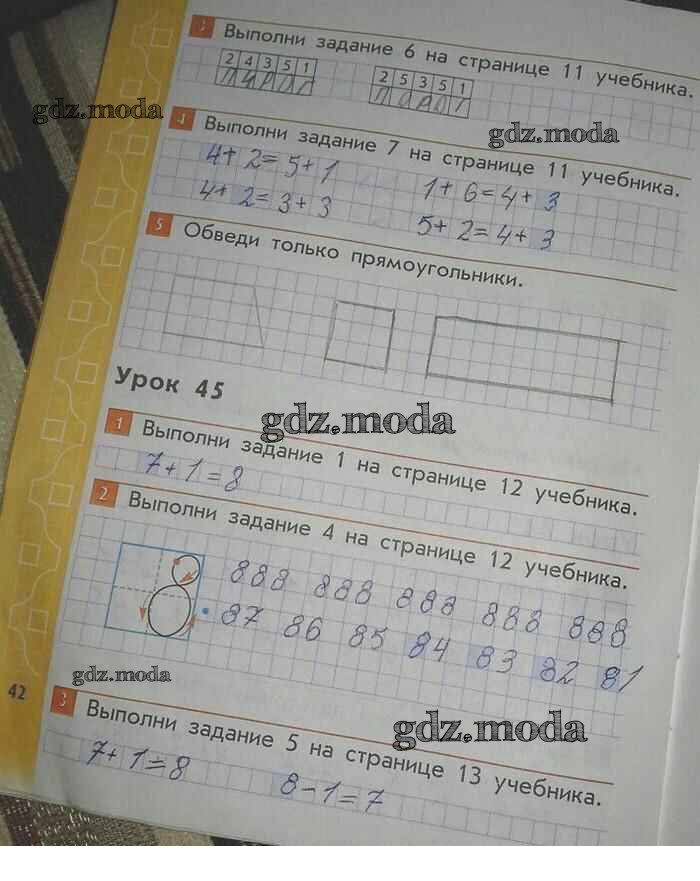 3 Выполни задание 6 на странице 11 учебника.
2 4 3 5 1 2 5 3 5 1
gdz.moda
gdz.moda
4 Выполни задание 7 на странице 11 учебника.
4+2=5+1 1+6=4+3
4+2=3+3 5+2=4+3
5 Обведи только прямоугольники.
Урок 45
gdz.moda
1 Выполни задание 1 на странице 12 учебника.
7+1=8
2 Выполни задание 4 на странице 12 учебника.
888 888 888 888 888
87 86 85 84 83 82 81
gdz.moda
42
3 Выполни задание 5 на странице 13 учебника.
gdz.moda
7+1=8 8-1=7